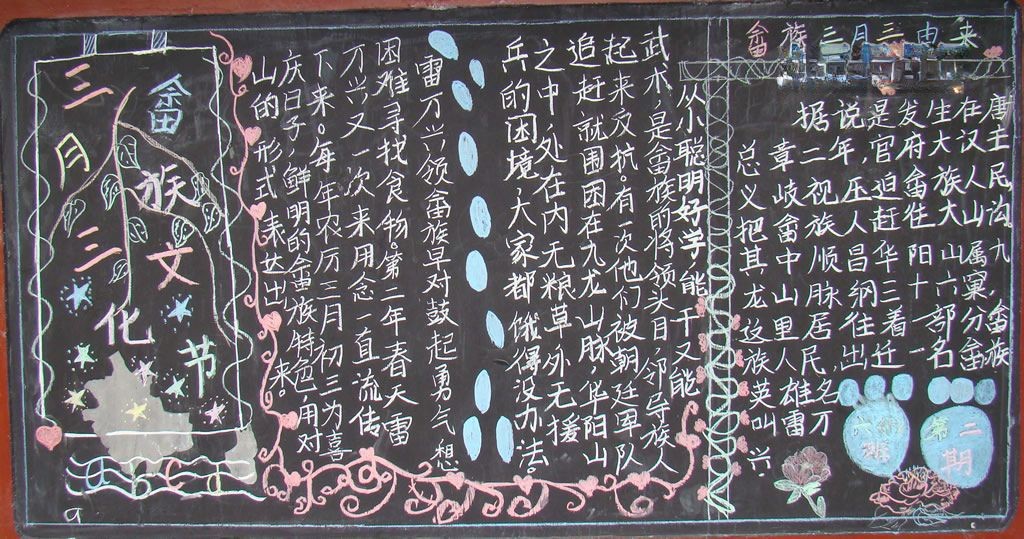 畲族三月三由来
据说是发生在唐
总章二年，官府大汉主
义岐视压迫畲族人民
把畲族人赶往大山沟
其中顺昌华阳山属九
龙山脉纲三十六窠，
这里居往着一部分畲
族人民，出迁一名畲族
英雄名
叫雷万
兴
从小聪明好学能干又能
武术，是畲族前将领头目，邻导族人
起来反抗。有一次他们被朝廷军队
追赶就围困在九龙山脉，华阳山
之中，处在内无粮草，外无援
兵的困境，大家都饿得没办法。
雷万兴领畲族早对鼓起勇气想
困难寻找食物。第二年春天雷
万兴又一次来用念一直流传
下来。每年农历三月初三为喜
庆日子，鲜明的畲族特色，用对
山的形式表达出来。
三月三
畲族文化节
第二期